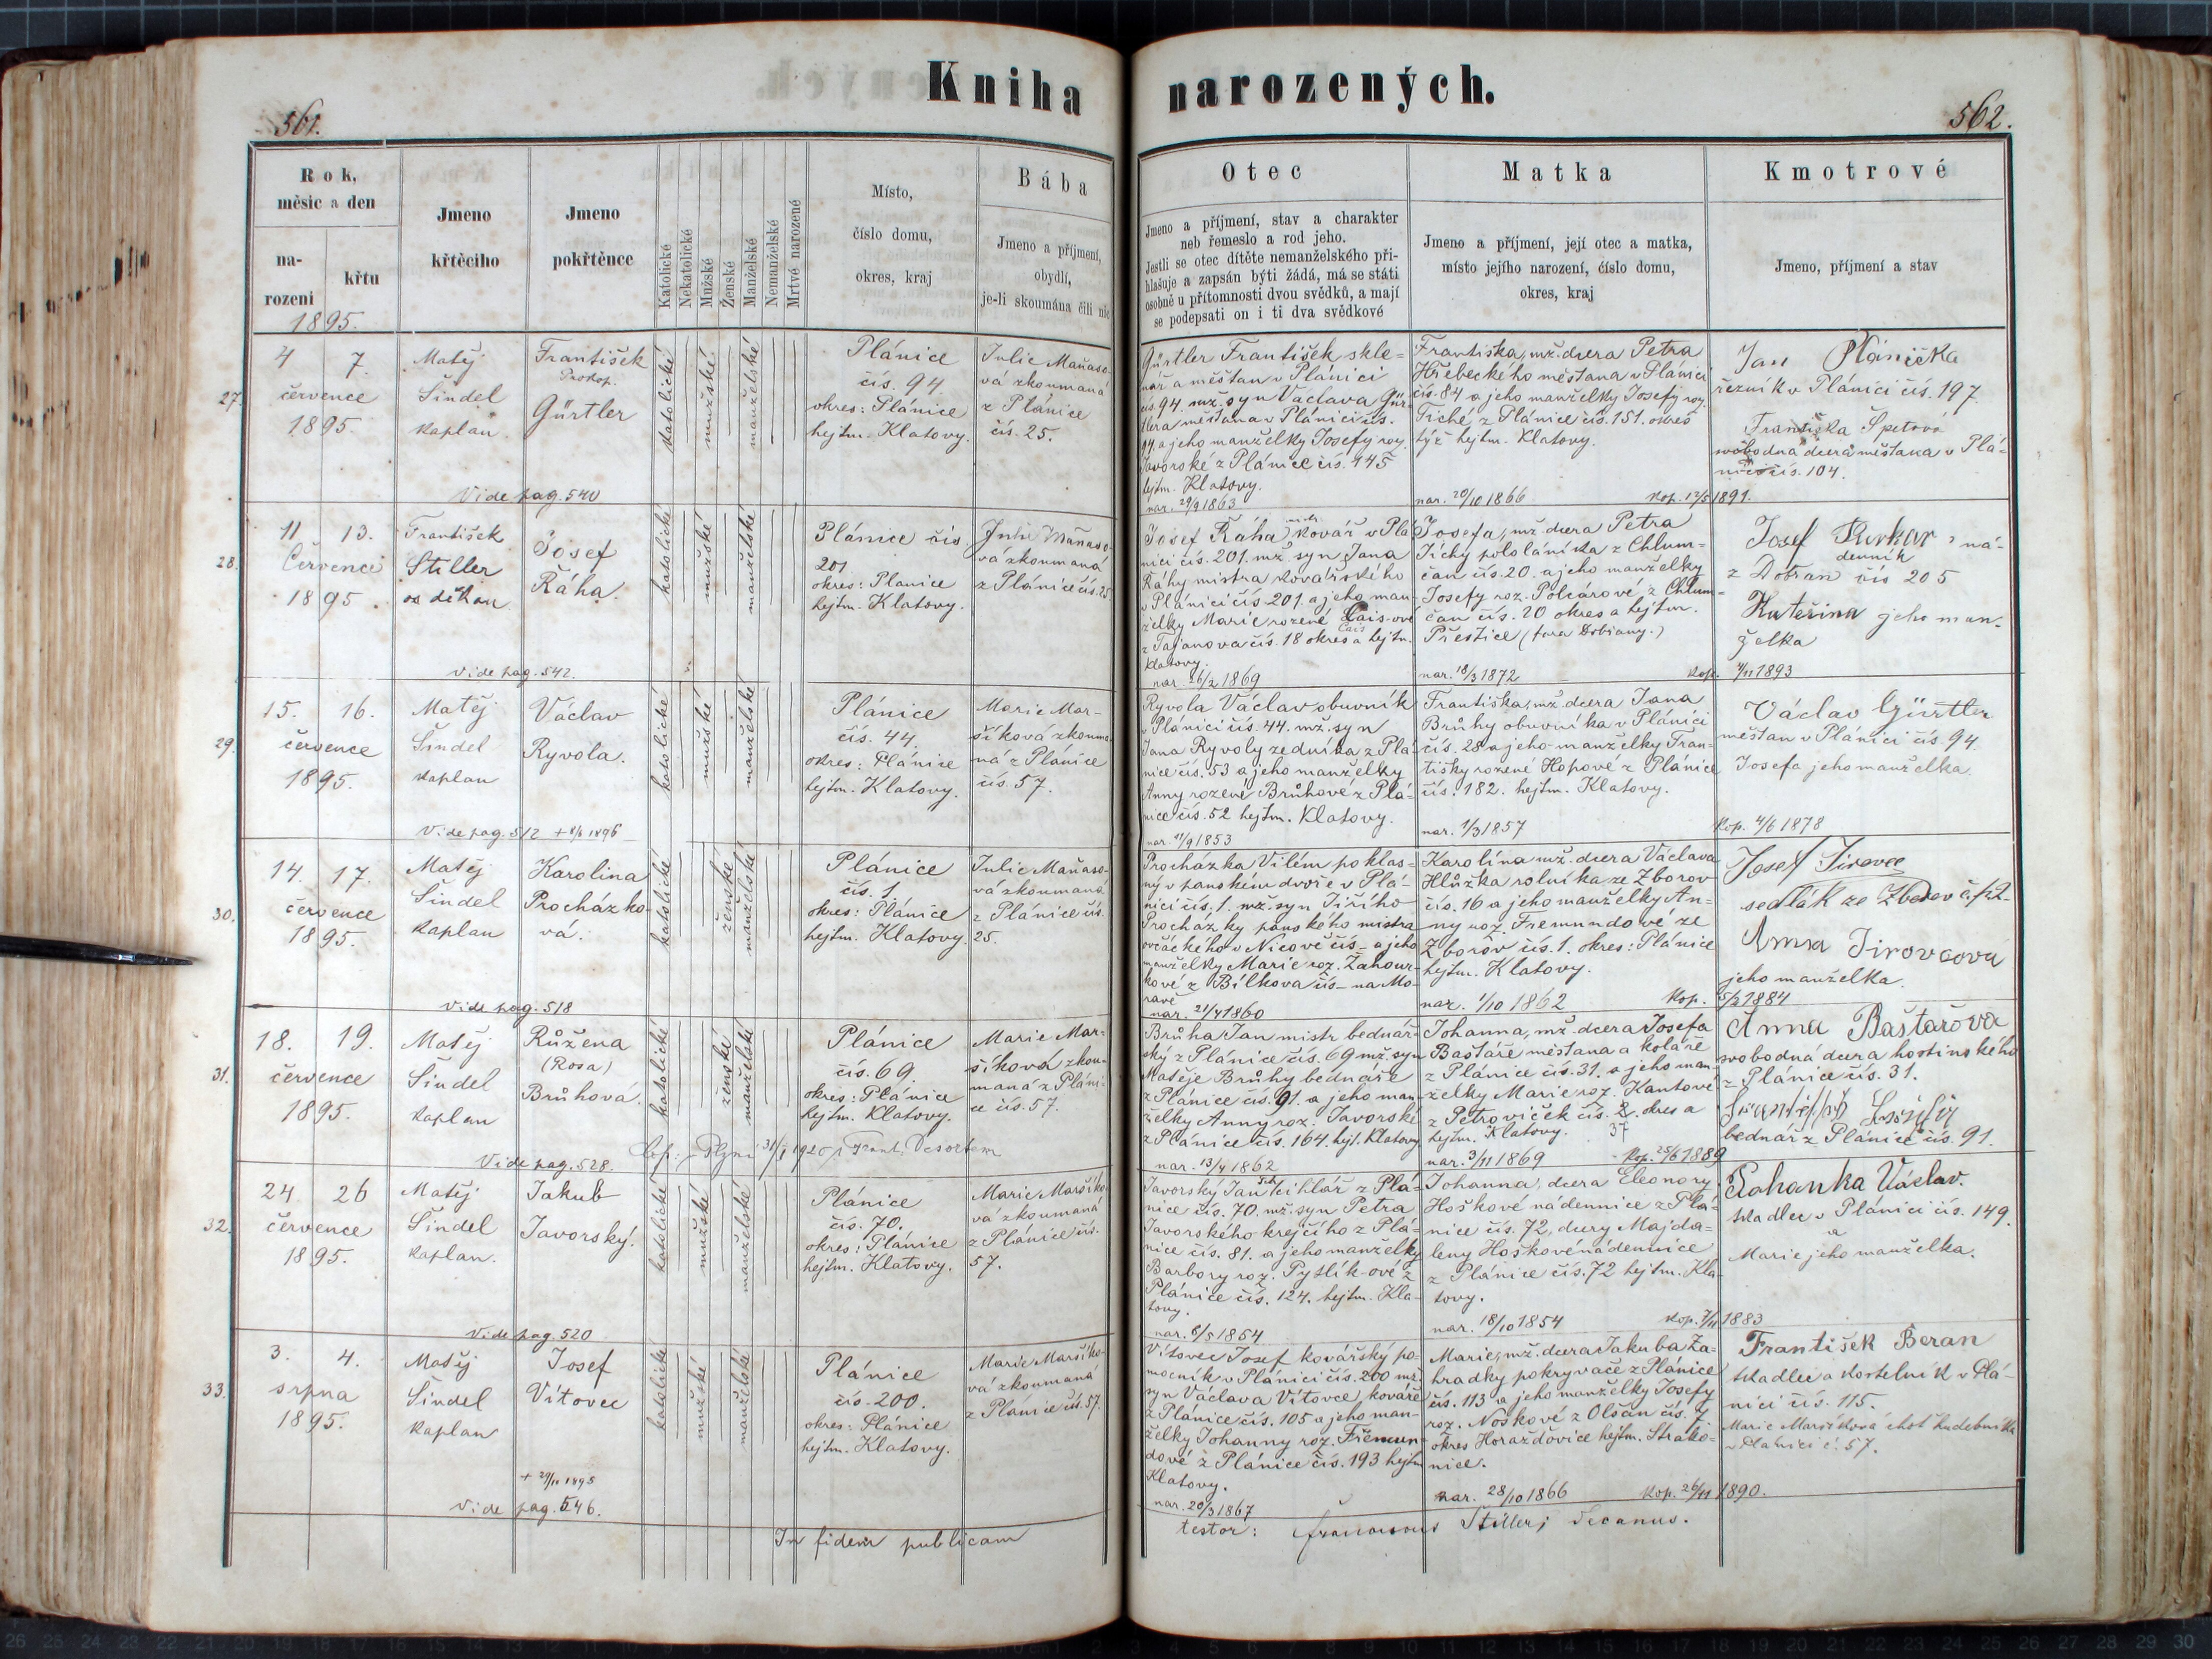 Kniha narozených.
561.
562.
Rok,
měsíc a den
na-
rození
křtu
1895.
Jmeno
křtěcího
Jmeno
pokřtěnce
Katolické
Nekatolické
Mužské
Ženské
Manželské
Nemanželské
Mrtvé narozené
Místo,
číslo domu,
okres, kraj
Bába
Jmeno a příjmení,
obydlí,
je-li skoumána čili nic
Otec
Jmeno a příjmení, stav a charakter
neb řemeslo a rod jeho.
Jestli se otec dítěte nemanželského při-
hlašuje a zapsán býti žádá, má se státi
osobně u přítomnosti dvou svědků, a mají
se podepsati on i ti dva svědkové
Matka
Jmeno a příjmení, její otec a matka,
místo jejího narození, číslo domu,
okres, kraj
Kmotrové
Jmeno, příjmení a stav
27.
4 7.
července
1895.
Matěj
Šindel
kaplan.
František
Prokop.
Gürtler
katolické
mužské
manželské
Plánice
čís. 94
okres: Plánice
hejtm. Klatovy.
Julie Maňaso-
vá zkoumaná
z Plánice
čís. 25.
Vide pag. 540
Gürtler František skle-
nář a měšťan v Plánici
čís. 94. mž. syn Václava Gür-
tlera měšťana v Plánici čís.
94. a jeho manželky Josefy roz.
Javorské z Plánice čís. 145
hejtm. Klatovy.
nar. 29/9 1863
Františka, mž. dcera Petra
Hřebeckého měšťana v Plánici
čís. 84 a jeho manželky Josefy roz.
Tiché z Plánice čís. 151. okres
týž hejtm. Klatovy.
nar. 20/10 1866
kop. 12/5 1891.
Jan Plánička
řezník v Plánici čís. 197.
Františka Špetová
svobodná dcera měšťana v Plá-
nici čís. 104.
28.
11 13.
Červenci
1895.
František
Stiller
děkan
Josef
Řáha.
katolické
mužské
manželské
Plánice čís.
201
okres: Plánice
hejtm. Klatovy.
Julie Maňaso-
vá zkoumaná
z Plánice čís. 25.
Vide pag. 542.
Josef Řáha, kovář v Plá-
nici čís. 201. mž. syn Jana
Řáhy mistra kovářského
v Plánici čís 201. a jeho man-
želky Marie rozené Cais-ové
Cais
z Tajanova čís. 18 okres a hejtm.
Klatovy.
nar. 26/2 1869
Josefa, mž. dcera Petra
Tichý pololáníka z Chlum-
čan čís. 20. a jeho manželky
Josefy roz. Polcárové, z Chlum-
čan čís. 20 okres a hejtm.
Přeštice (fara Dobřany.)
nar. 18/3 1872
kop. 7/11 1893
Josef ná-
denník
z Dobřan čís 205
Kateřina jeho man-
želka
29.
15. 16.
července
1895.
Matěj
Šindel
kaplan
Václav
Ryvola.
katolické
mužské
manželské
Plánice
čís. 44
okres: Plánice
hejtm. Klatovy.
Marie Mar-
šíková zkouma-
ná z Plánice
čís. 57.
Vide pag. 512 + 8/6 1896
Ryvola Václav obuvník
v Plánici čís. 44. mž. syn
Jana Ryvoly zedníka z Plá-
nice čís. 53 a jeho manželky
Anny rozené Brůhové z Plá-
nice čís. 52 hejtm. Klatovy.
nar. 11/9 1853
Františka, mž. dcera Jana
Brůhy obuvníka v Plánici
čís. 28 a jeho manželky Fran-
tišky rozené Hopové z Plánice
čís. 182. hejtm. Klatovy.
nar. 1/3 1857
Kop. 4/6 1878
Václav Gürtler
měšťan v Plánici čís. 94.
Josefa jeho manželka.
30.
14. 17.
července
1895.
Matěj
Šindel
kaplan
Karolina
Procházko-
vá.
katolické
ženské
manželské
Plánice
čís. 1.
okres: Plánice
hejtm. Klatovy.
Julie Maňaso-
vá zkoumaná
z Plánice čís.
25.
Vide pag. 518
Procházka Vilém poklas-
ný v panském dvoře v Plá-
nici čís. 1. mž. syn Jiřího
Procházky panského mistra
ovčáckého v Nicově čís – a jeho
manželky Marie roz. Zahour-
kové z Bílkova čís – na Mo-
ravě
nar. 21/4 1860
Karolína mž. dcera Václava
Hlůžka rolníka ze Zborov
čís. 16 a jeho manželky An-
ny roz. Fremundové ze
Zborov čís. 1. okres: Plánice
hejtm. Klatovy.
nar. 1/10 1862
Kop. 5/2 1884
Josef Jirovec
sedlák ze Zborov
Anna Jirovcová
jeho manželka.
31.
18. 19.
července
1895.
Matěj
Šindel
kaplan
Růžena
(Rosa)
Brůhová.
katolické
ženské
manželské
Plánice
čís. 69
okres: Plánice
hejtm. Klatovy.
Marie Mar-
šíková zkou-
maná z Pláni-
ce čís. 57.
Vide pag. 528.
Brůha Jan mistr bednář-
ský z Plánice čís. 69 mž. syn
Matěje Brůhy bednáře
z Plánice čís. 91. a jeho man-
želky Anny roz. Javorské
z Plánice čís. 164. hejt. Klatovy
nar. 13/4 1862
Johanna, mž. dcera Josefa
Baštáře měšťana a koláře
z Plánice čís. 31. a jeho man-
želky Marie roz. Kantové
z Petroviček čís. 2. okres a
hejtm. Klatovy. 37
nar. 3/11 1869
Kop. 25/6 1889
Anna Baštářová
svobodná dcera hostinského
z Plánice čís. 31.
bednář z Plánice čís. 91.
32.
24 26
července
1895.
Matěj
Šindel
kaplan.
Jakub
Javorský.
katolické
mužské
manželské
Plánice
čís. 70.
okres: Plánice
hejtm. Klatovy.
Marie Maršíko-
vá zkoumaná
z Plánice čís.
57.
Vide pag. 520
Javorský Jan cihlář z Plá-
nice čís. 70. mž. syn Petra
Javorského krejčího z Plá-
nice čís. 81. a jeho manželky
Barbory roz. Pytlík-ové z
Plánice čís. 124. hejtm. Kla-
tovy.
nar. 8/5 1854
Johanna, dcera Eleonory
Hoškové nádennice z Plá-
nice čís. 72, dcery Majda-
leny Hoškové nádennice
z Plánice čís. 72 hejtm. Kla-
tovy.
nar. 18/10 1854
kop. 7/11 1883
Pohanka Václav.
tkadlec v Plánici čís. 149.
a
Marie jeho manželka.
33.
3. 4.
srpna
1895.
Matěj
Šindel
kaplan
Josef
Vítovec
katolické
mužské
manželské
Plánice
čís. 200.
okres: Plánice
hejtm. Klatovy.
Marie Maršíko-
vá zkoumaná
z Plánice čís. 57.
+ 29/11 1895
Vide pag. 546.
Vítovec Josef kovářský po-
mocník v Plánici čís. 200 mž.
syn Václava Vítovce, kováře
z Plánice čís. 105 a jeho man-
želky Johanny roz. Fremun-
dové z Plánice čís. 193 hejtm
Klatovy.
nar. 20/3 1867
Marie, mž. dcera Jakuba Za-
hradky pokrývače z Plánice
čís. 113 a jeho manželky Josefy
roz. Noskové z Olšan čís. 7
okres Horažďovice hejtm. Strako-
nice.
nar. 28/10 1866
kop. 26/11 1890.
František Beran
tkadlec a kostelník v Plá-
nici čís. 115.
Marie Maršíková choť hudebníka
v Plánici č. 57.
In fidem publicam
testor: Franciscus Stiller, decanus.